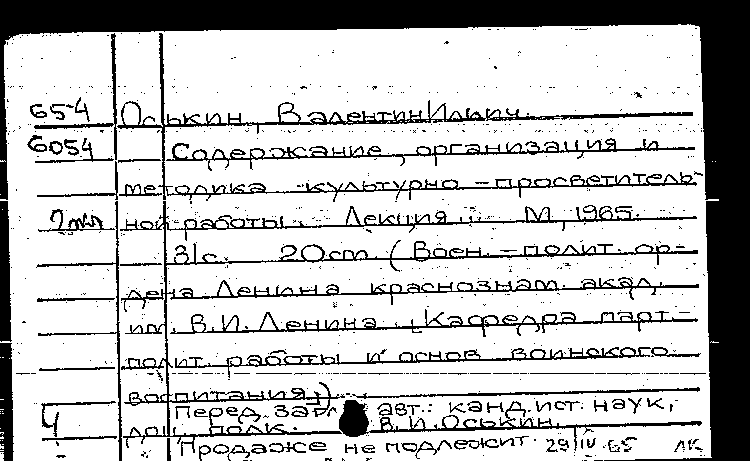 65-4 Оськин, Валентин Ильич.
6054 Содержание, организация и
методика культурно-просветитель-
2 экз ной работы. Лекция. М, 1965.
31с. 20cm. (Воен.-полит. ор-
дена Ленина краснознам. акад.
им. В.И. Ленина. Кафедра парт.-
полит. работы и основ воинского
воспитания.)
Ч Перед загл авт.: канд. ист. наук,
доц. полк. В.И. Оськин.
Продаже не подлежит. 29/IV-65 ЛК